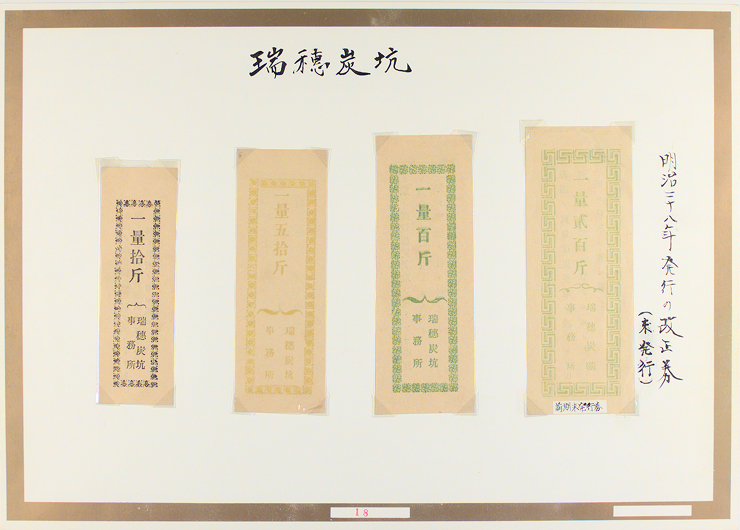 瑞穂炭坑
一量拾斤
瑞穂炭坑
事務所
一量五拾斤
瑞穂炭坑
事務所
一量百斤
瑞穂炭坑
事務所
一量貮百斤
瑞穂炭坑
事務所
前期未発行券
明治二十八年発行の改正券
(未発行)
18